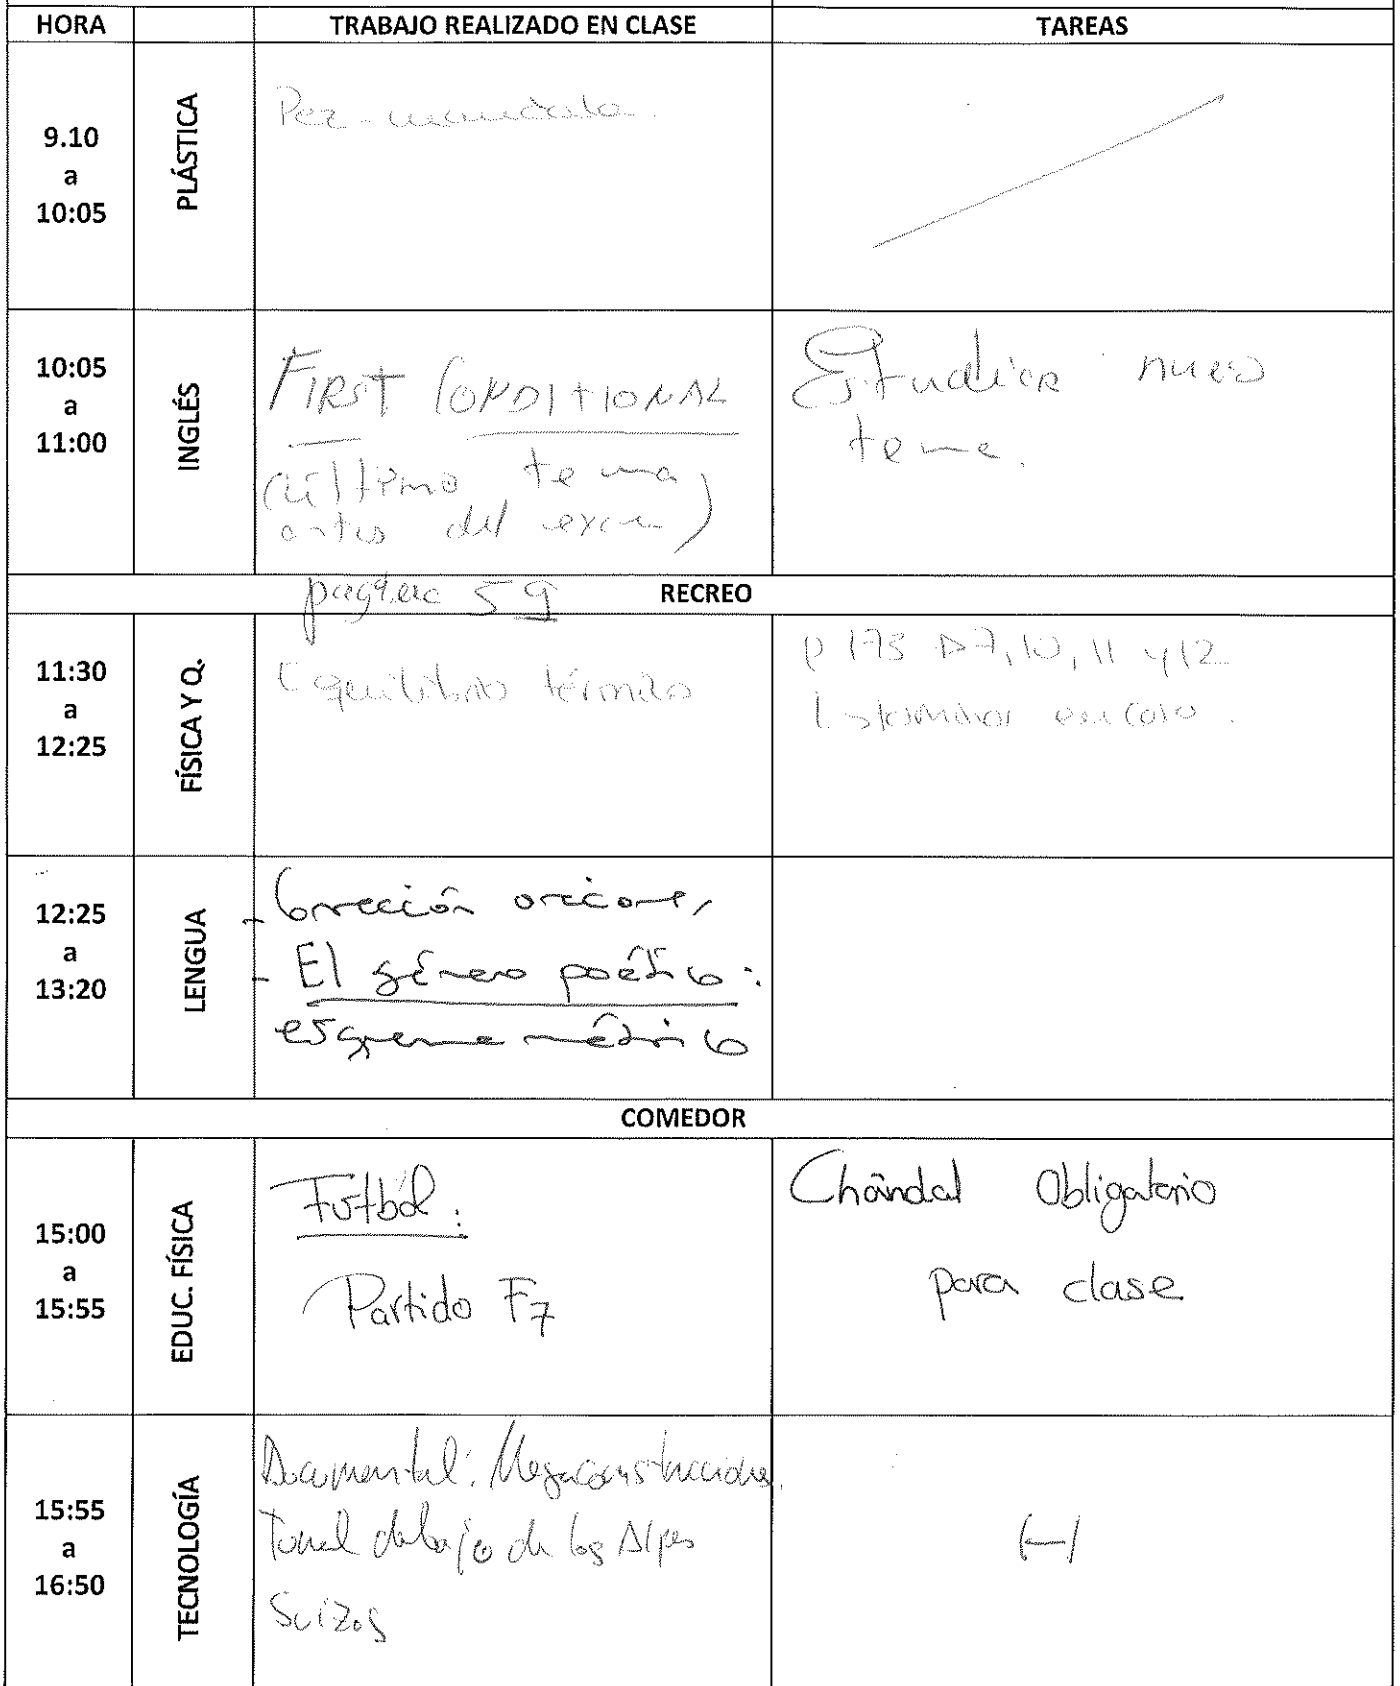 HORA TRABAJO REALIZADO EN CLASE TAREAS
9.10
a
10:05
PLÁSTICA
Pez-mandala.
10:05
a
11:00
INGLÉS
FIRST CONDITIONAL
(último tema
antes del examen)
página 59
Estudiar nuevo
tema.
RECREO
11:30
a
12:25
FÍSICA Y Q.
Equilibrio térmico
p 173 7, 10, 11 y 12
terminar en casa.
12:25
a
13:20
LENGUA
- Corrección
- El género poético:
esquema métrico
COMEDOR
15:00
a
15:55
EDUC. FÍSICA
Fútbol:
Partido F7
Chándal Obligatorio
para clase
15:55
a
16:50
TECNOLOGÍA
Documental: Megaconstrucciones.
Tunel debajo de los Alpes
Suizos
(-)